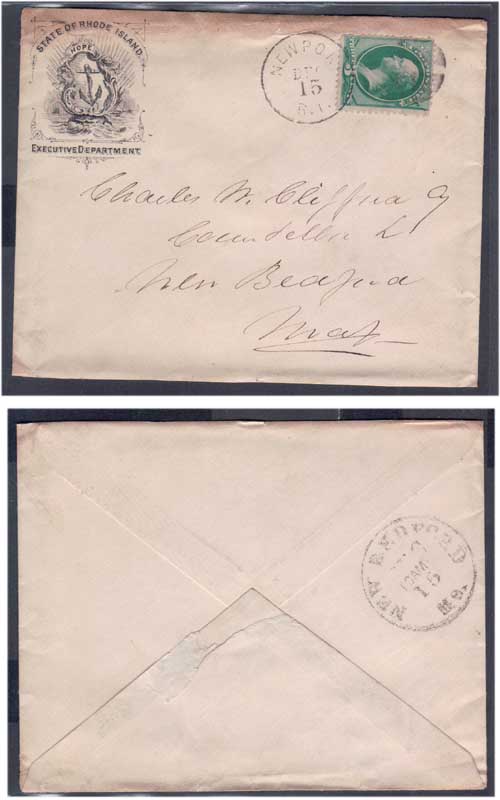 STATE OF RHODE ISLAND.
HOPE
EXECUTIVE DEPARTMENT.
NEWPOR
DEC
15
R.I.
Charles W. Clifford Esq
Counsellor L
New Bedford
Mass
NEW BEDFORD
10AM
15
MS.